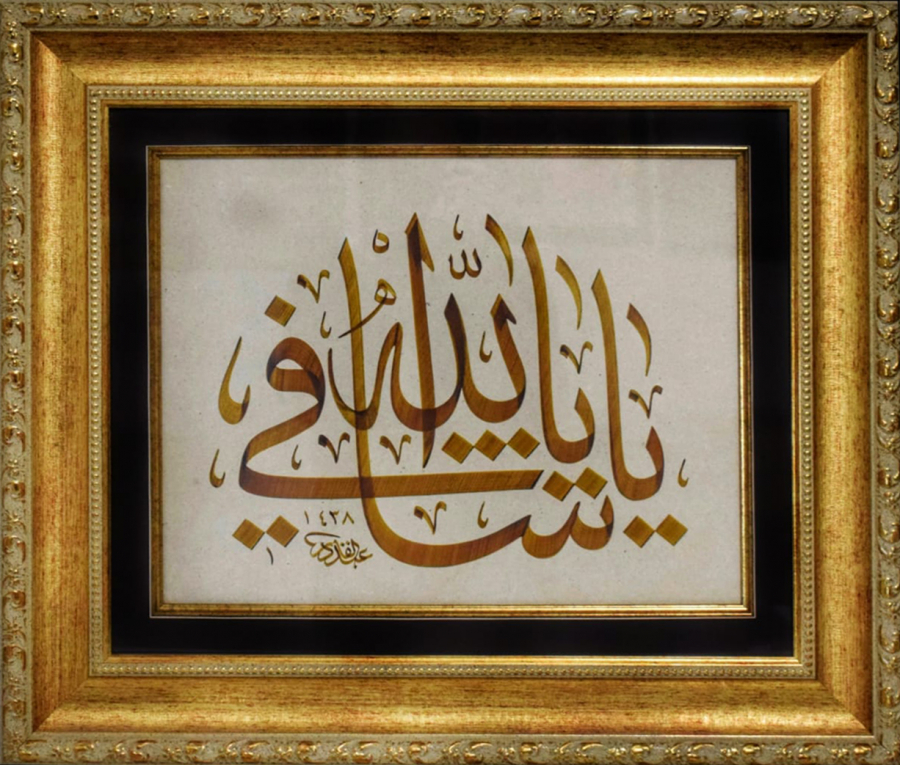 يا الله يا شافي
١٤٣٨
عبدالقادر
١